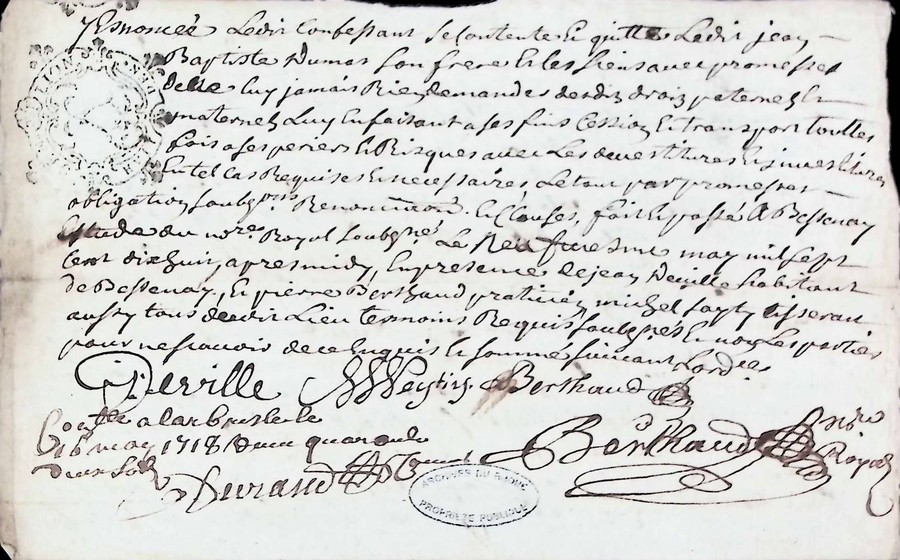 Ledit Confessant se contente Et quitte Ledit jean
Baptiste Dumas son frere Et les siens avec promesses
de ne luy jamais Rien demander desdits droits paternels Et
maternels Luy En faisant a ses fins Cession Et transport touttes
fois a ses perils Et Risques avec Les devestitures Et investitures
En tel cas Requises Et necessaires Le tout par promesses
obligation Renonciations Et Clauses, fait Et passé A Bessenay
Estude du nore Royal soubsné Le may mil sept
Cent dix huit, apres midy, En presence de jean Deville habitant
de Bessenay, Et pierre Berthaud praticien, michel tisseran
aussy tous dudit Lieu temoins Requis soubsnés Et non Les parties
pour ne scavoir de ce Enquis Et sommé suivant Lordce
Deville Berthaud
a larbresle le
16 may 1718
Durand Berthaud Royal
ARCHIVES DU RHÔNE
PROPRIÉTÉ PUBLIQUE